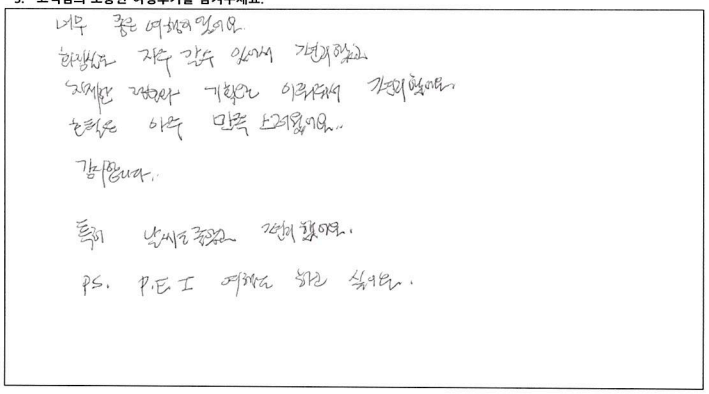 5. 고객님의 소중한 여행후기를 남겨주세요.
너무 좋은 여행이었어요
화장실도 자주 갈수 있어서 편했고
자세한 설명과
호텔은 아주 만족스러웠어요..
감사합니다.
특히 날씨도 좋았고 했어요.
PS. P.E.I 여행도 하고 싶어요.